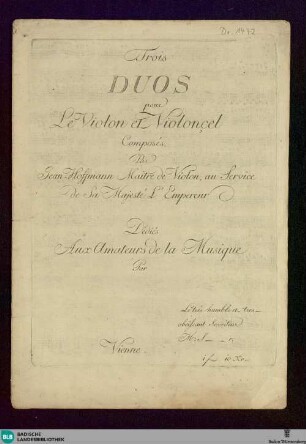 Dr. 1972
Trois
DUOS
pour
Le Violon et Violoncel
Composés
De
Jean Hoffmann Maitre de Violon, au Service
de Sa Majesté L'Empereur
Dediés
Aux Amateurs de la Musique
Par
Le très humble et
obeissant Serviteur
Vienne.
BLB
BADISCHE
LANDESBIBLIOTHEK